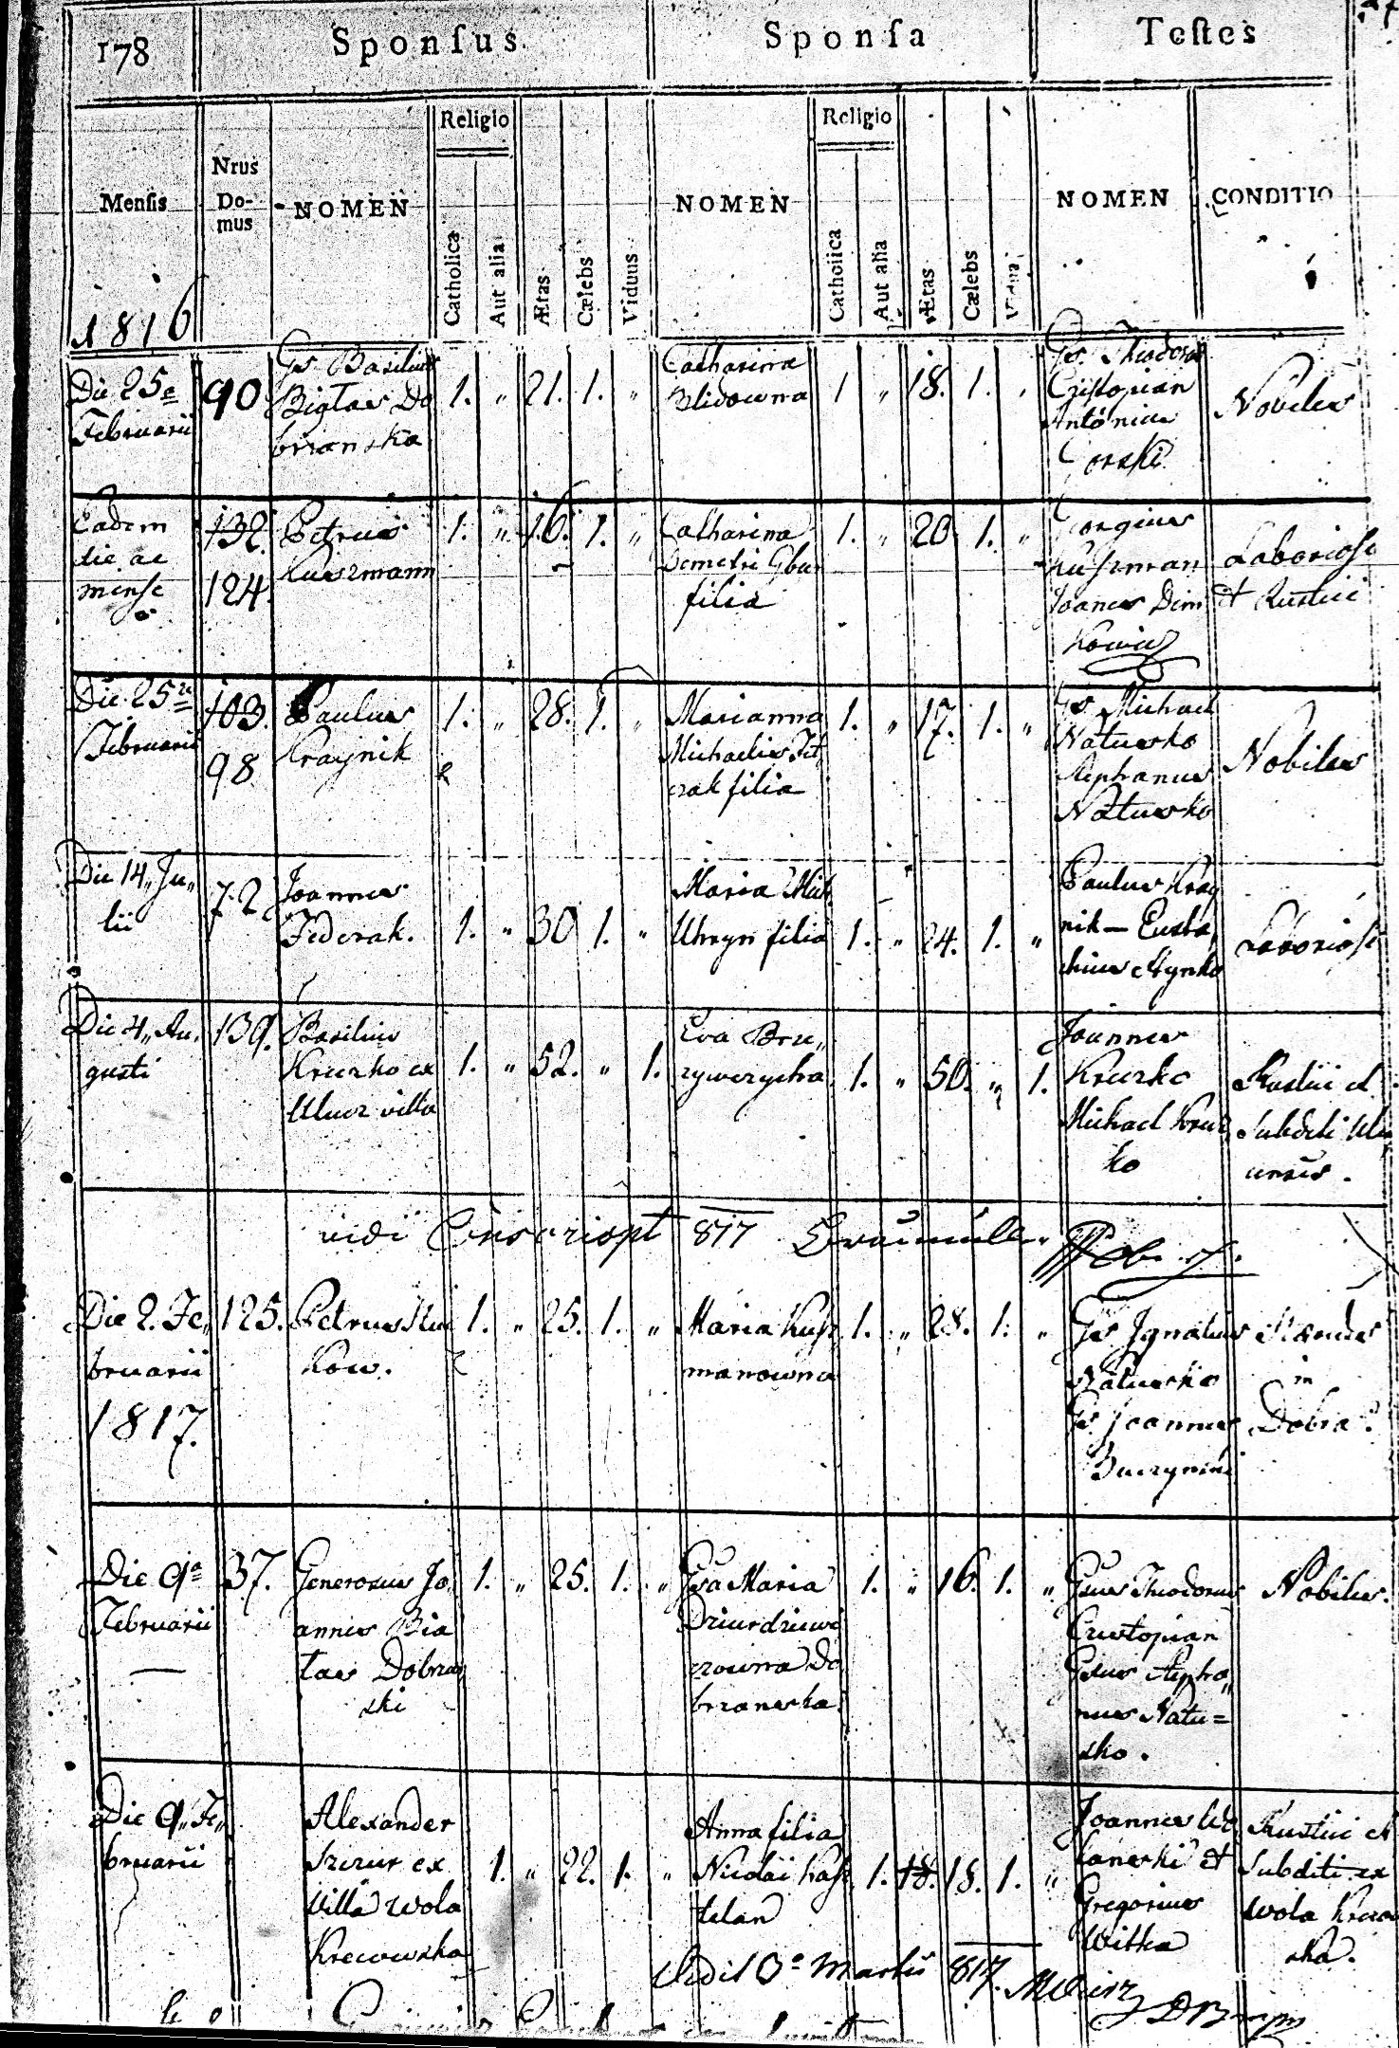 178
Sponsus
Sponsa
Testes
Mensis
Nrus Do-mus
NOMEN
Religio
Catholica
Aut alia
Ætas
Cælebs
Viduus
NOMEN
Religio
Catholica
Aut alia
Ætas
Cælebs
Vidua
NOMEN
CONDITIO
1816
Die 25e
Februarii
90
Gs Basilius
Bigłas Do
brzanska
1. " 21. 1. "
Catharina
Blidowna
1 " 18. 1. "
Gs Theodorus
Cristopian
Antonius
Gorski
Nobiles
Eadem
die ac
mense
132.
124.
Petrus
Kuszmann
1. " 16. 1. "
Catharina
Demetri Gbur
filia
1. " 20. 1. "
Georgius
Kuszman
Joanes Dim
kowicz
Laboriosi
et Rustici
Die 25ta
Februarii
103.
98
Paulus
Kraynik
1. " 28. 1. "
Marianna
Michaelis Fed
rak filia
1. " 17. 1. "
Gs Michael
Natusko
Stephanus
Natusko
Nobiles
Die 14 Ju"
lii
72
Joannes
Federak.
1. " 30 1. "
Maria Mich.
Uhryn filia
1. " 24. 1. "
Paulus Kray
nik — Eusta
chius Hynko
Laboriosi
Die 4" Au,
gusti
139.
Basilius
Kruzko ex
Ulucz villa
1. " 52. " 1.
Eva Brze"
zywczycha
1. " 50. " 1.
Joannes
Kruzko
Michael Kruz
ko
Rustici et
Subditi Ulu
censes.
vidi Conscript 817
Die 2. Fe"
bruarii
1817.
125.
Petrus
kow.
1. " 25. 1. "
Maria Kusz
manowna
1. " 28. 1. "
Gs Ignatius
Natusko
Gs Joannes
Buczynski
in
Dobra.
Die 9a
Februarii
37.
Generosus Jo
annes Bia
łas Dobrzan
ski
1. " 25. 1. "
Gsa Maria
Dziurdziewi
czowna Do
brzanska
1. " 16. 1. "
Gsus Theodorus
Cristopian
Gsus Stepha"
nus Natu=
sko.
Nobiles.
Die 9" Fe"
bruarii
Alexander
Szczur ex
Villa Wola
Krecowska
1. " 22. 1. "
Anna filia
Nicolai Kasz
telan
1. 18. 18. 1. "
Joannes
łanski et
Gregorius
Witka
Rustici et
Subditi ex
Wola Krecow
ska.
Vidi 10a Martii 817.